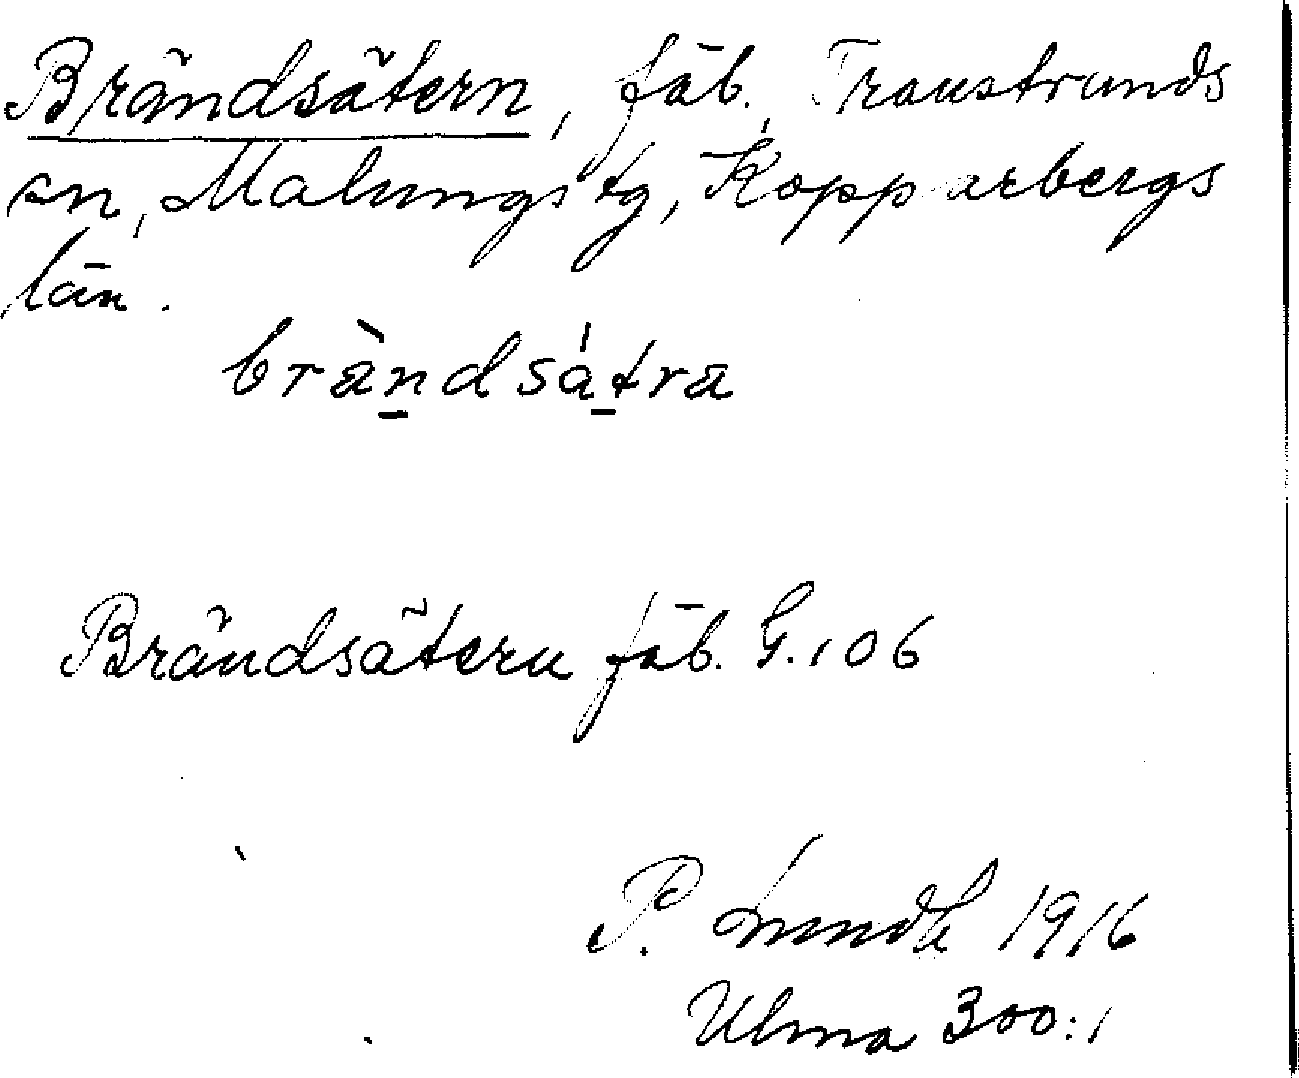 Brändsätern, fäb. Transtrands
sn, Malungs tg, Kopparbergs
län.
bràndsátra
Brändsätern fäb. G. 106
P. 1916
Ulma 300:1